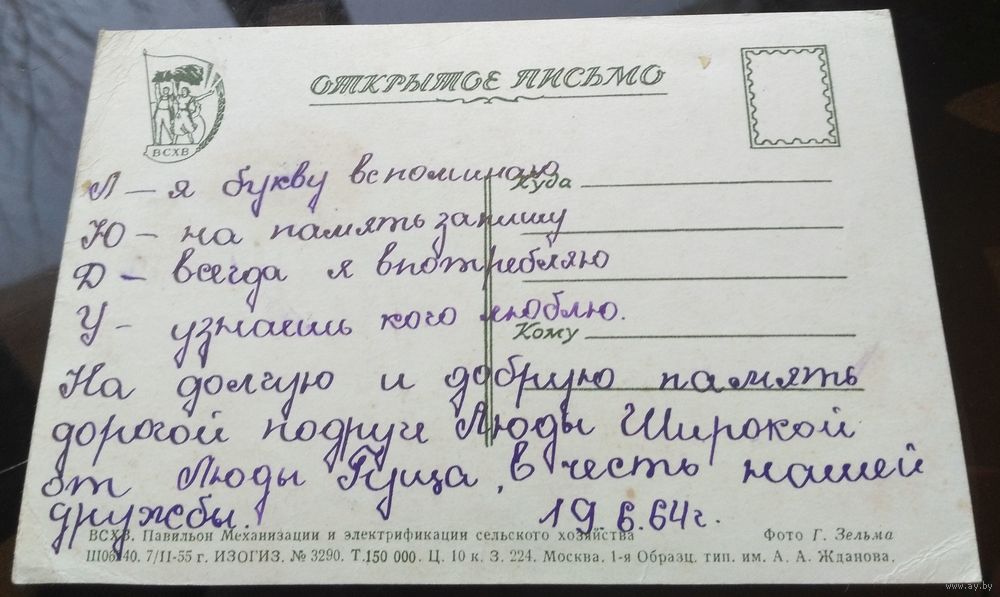 ОТКРЫТОЕ ПИСЬМО
ВСХВ
Л – я букву вспоминаю
Куда
Ю – на память запишу
Д – всегда я впотребляю
У – узнаешь кого люблю.
Кому
На долгую и добрую память
дорогой подруге Люды Широкой
от Люды, в честь нашей
дружбы. 19.6.64г.
ВСХВ. Павильон Механизации и электрификации сельского хозяйства Фото Г. Зельма
Ш06240. 7/II-55 г. ИЗОГИЗ. № 3290. Т. 150 000. Ц. 10 к. З. 224. Москва. 1-я Образц. тип. им. А. А. Жданова.
www.ay.by